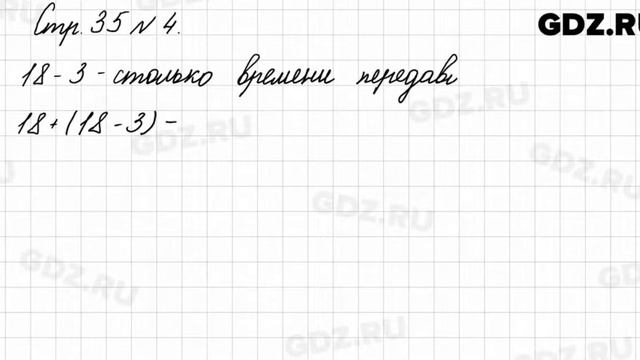 GDZ.RU
Стр. 35 № 4.
18 - 3 - столько времени передав
18 + (18 - 3) -
GDZ.RU
GDZ.RU
GDZ.RU
GDZ.RU
GDZ.RU
GDZ.RU
GDZ.RU